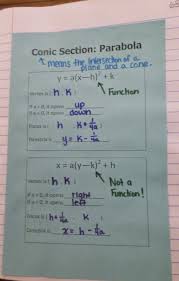 Conic Section: Parabola
means the intersection of a
plane and a cone.
y = a(x−h)² + k
Vertex is ( h , k )
Function
If a > 0, it opens up
If a < 0, it opens down
Focus is ( h , k + 1/4a )
Directrix is y = k − 1/4a
x = a(y−k)² + h
Vertex is ( h , k )
Not a
Function!
If a > 0, it opens right
If a < 0, it opens left
Focus is ( h + 1/4a , k )
Directrix is x = h − 1/4a